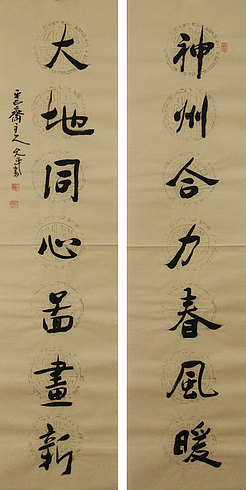 神州合力春風暖
大地同心畐畫新